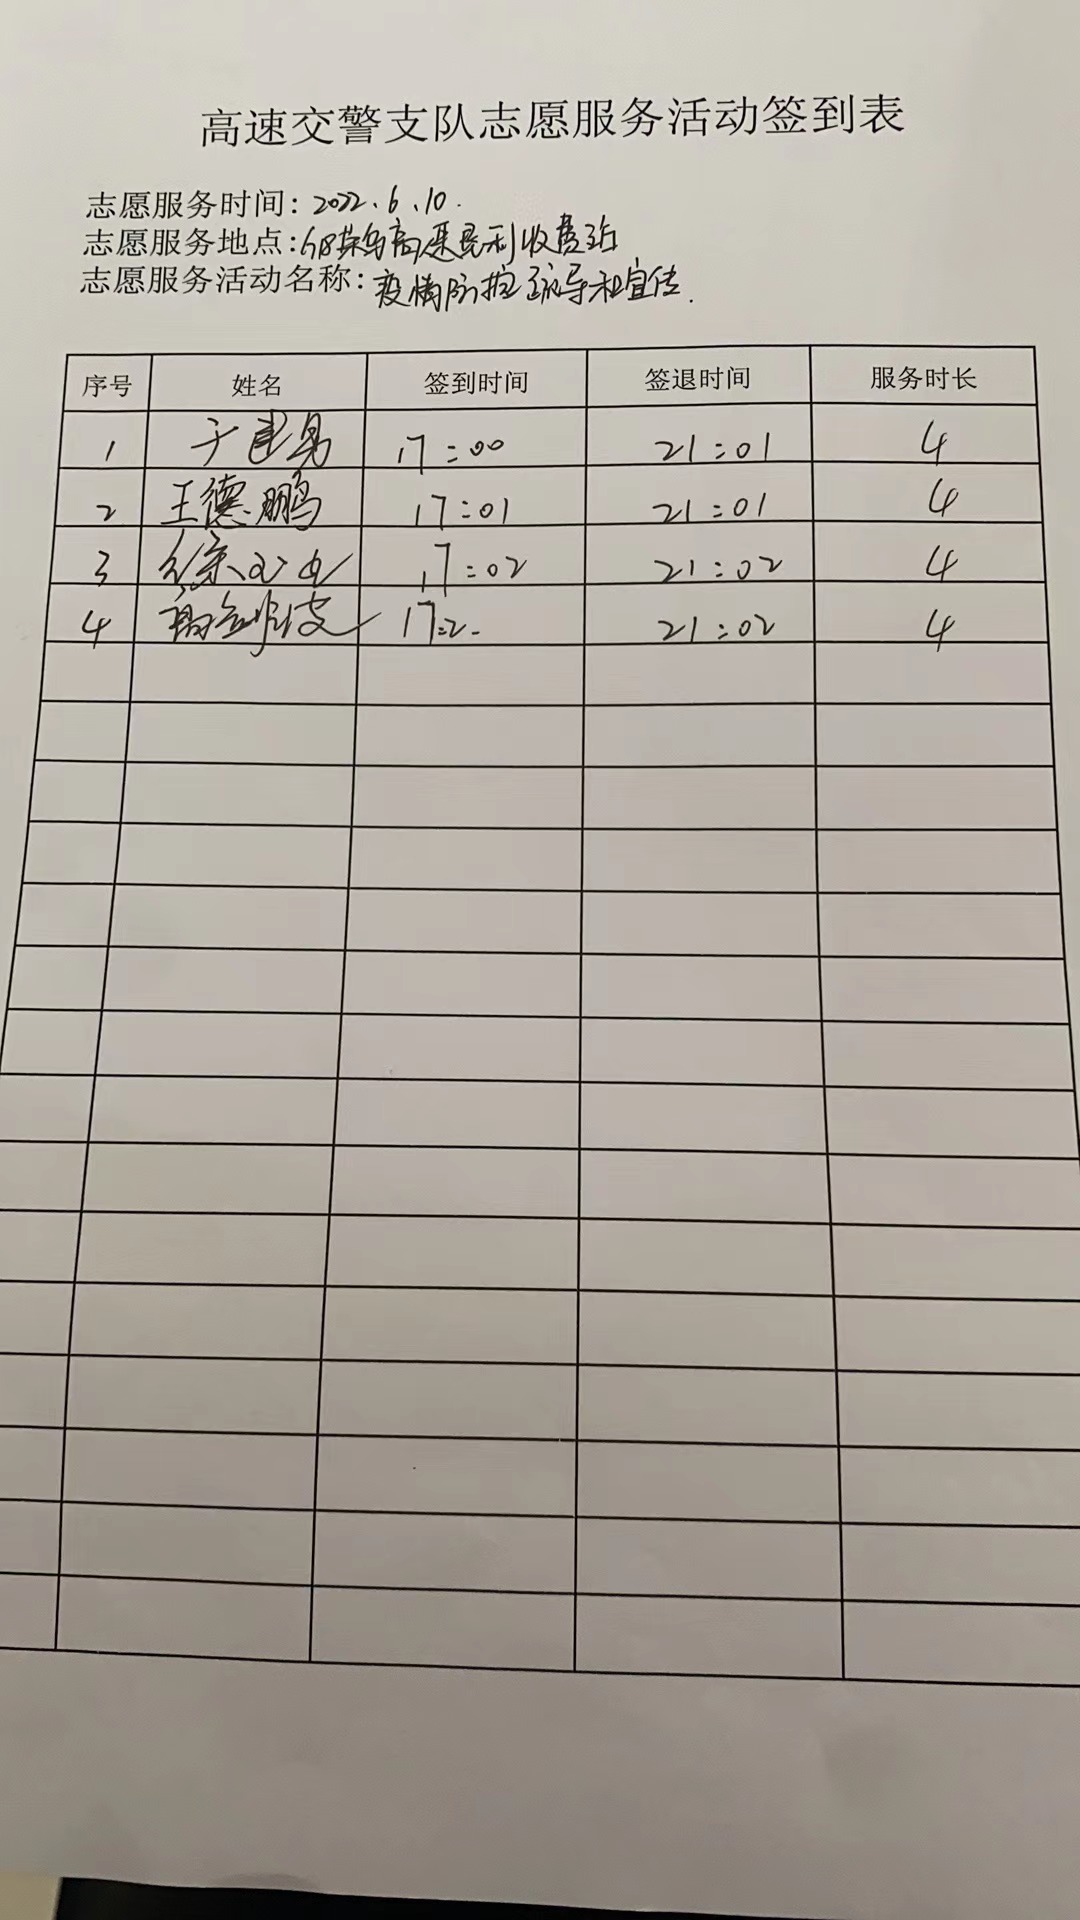 高速交警支队志愿服务活动签到表
志愿服务时间：2022.6.10.
志愿服务地点：G18荣乌高速民利收费站
志愿服务活动名称：疫情防控疏导和宣传.
序号 姓名 签到时间 签退时间 服务时长
1 于建 17:00 21:01 4
2 王德鹏 17:01 21:01 4
3 徐 17:02 21:02 4
4 17:2- 21:02 4